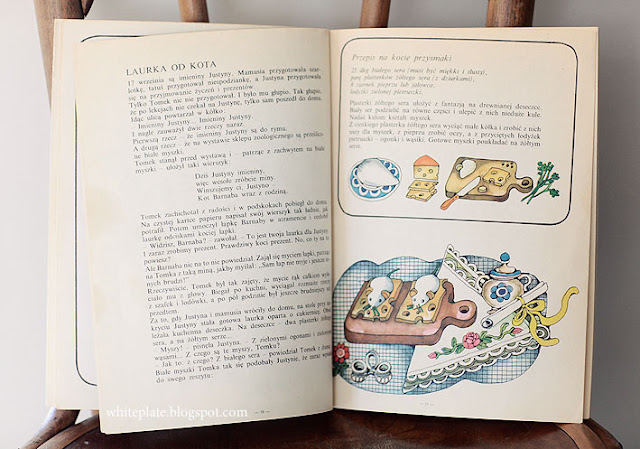 LAURKA OD KOTA
17 września są imieniny Justyny. Mamusia przygotowała
kotkę, tatuś przygotował niespodziankę, a Justyna przygotowała
się na przyjmowanie życzeń i prezentów.
Tylko Tomek nic nie przygotował. I było mu głupio. Tak głupio,
że po lekcjach nie czekał na Justynę, tylko sam poszedł do domu.
Idąc ulicą powtarzał w kółko:
– Imieniny Justyny... Imieniny Justyny
I nagle zauważył dwie rzeczy naraz.
Pierwszą rzecz – że imieniny Justyny są do rymu.
A drugą rzecz – że na wystawie sklepu zoologicznego są prześlicz-
ne białe myszki.
Tomek stanął przed wystawą i – patrząc z zachwytem na białe
myszki – ułożył taki wierszyk:
Dziś Justyny imieniny,
więc wesołe zróbcie miny.
Winszujemy ci, Justyno
Kot Barnaba wraz z rodziną.
Tomek zachichotał z radości i w podskokach pobiegł do domu.
Na czystej kartce papieru napisał swój wierszyk tak ładnie, jak
potrafił. Potem umoczył łapkę Barnaby w atramencie i ozdobił
laurkę odciskami kociej łapki.
– Widzisz, Barnaba? – zawołał. – To jest twoja laurka dla Justyny.
I zaraz zrobimy prezent. Prawdziwy koci prezent. No, co ty na to
powiesz?
Ale Barnaba nic na to nie powiedział. Zajął się myciem łapki, patrząc
na Tomka z taką miną, jakby myślał: „Sam łap nie myje i jeszcze
nych brudzi!”
Rzeczywiście, Tomek był tak zajęty, że mycie rąk całkiem wyle-
ciało mu z głowy. Biegał po kuchni, wyciągał rozmaite rzeczy
z szafek i lodówki, a po pół godzinie był jeszcze brudniejszy niż
przedtem.
Za to, gdy Justyna i mamusia wróciły do domu, na stole przy na-
kryciu Justyny stała gotowa laurka oparta o cukiernicę. Obok
leżała kuchenna deseczka. Na deseczce – dwa plasterki żółtego
sera, a na żółtym serze...
– Myszy! – pisnęła Justyna. – Z zielonymi ogonami i zielonymi
wąsami... Z czego są te myszy, Tomku?
– Jak to, z czego? Z białego sera – powiedział Tomek z dumą.
Białe myszki Tomka tak się podobały Justynie, że zaraz wpisała
do swego zeszytu:
Przepis na kocie przysmaki
25 dkg białego sera (musi być miękki i tłusty),
parę plasterków żółtego sera (z dziurkami),
8 ziarnek pieprzu lub jałowca,
łodyżki zielonej pietruszki.
Plasterki żółtego sera ułożyć z fantazją na drewnianej deseczce.
Biały ser podzielić na równe części i ulepić z nich nieduże kule.
Nadać kulom kształt myszek.
Z cienkiego plasterka żółtego sera wyciąć małe kółka i zrobić z nich
uszy dla myszek, z pieprzu zrobić oczy, a z przyciętych łodyżek
pietruszki – ogonki i wąsiki. Gotowe myszki poukładać na żółtym
serze.
whiteplate.blogspot.com